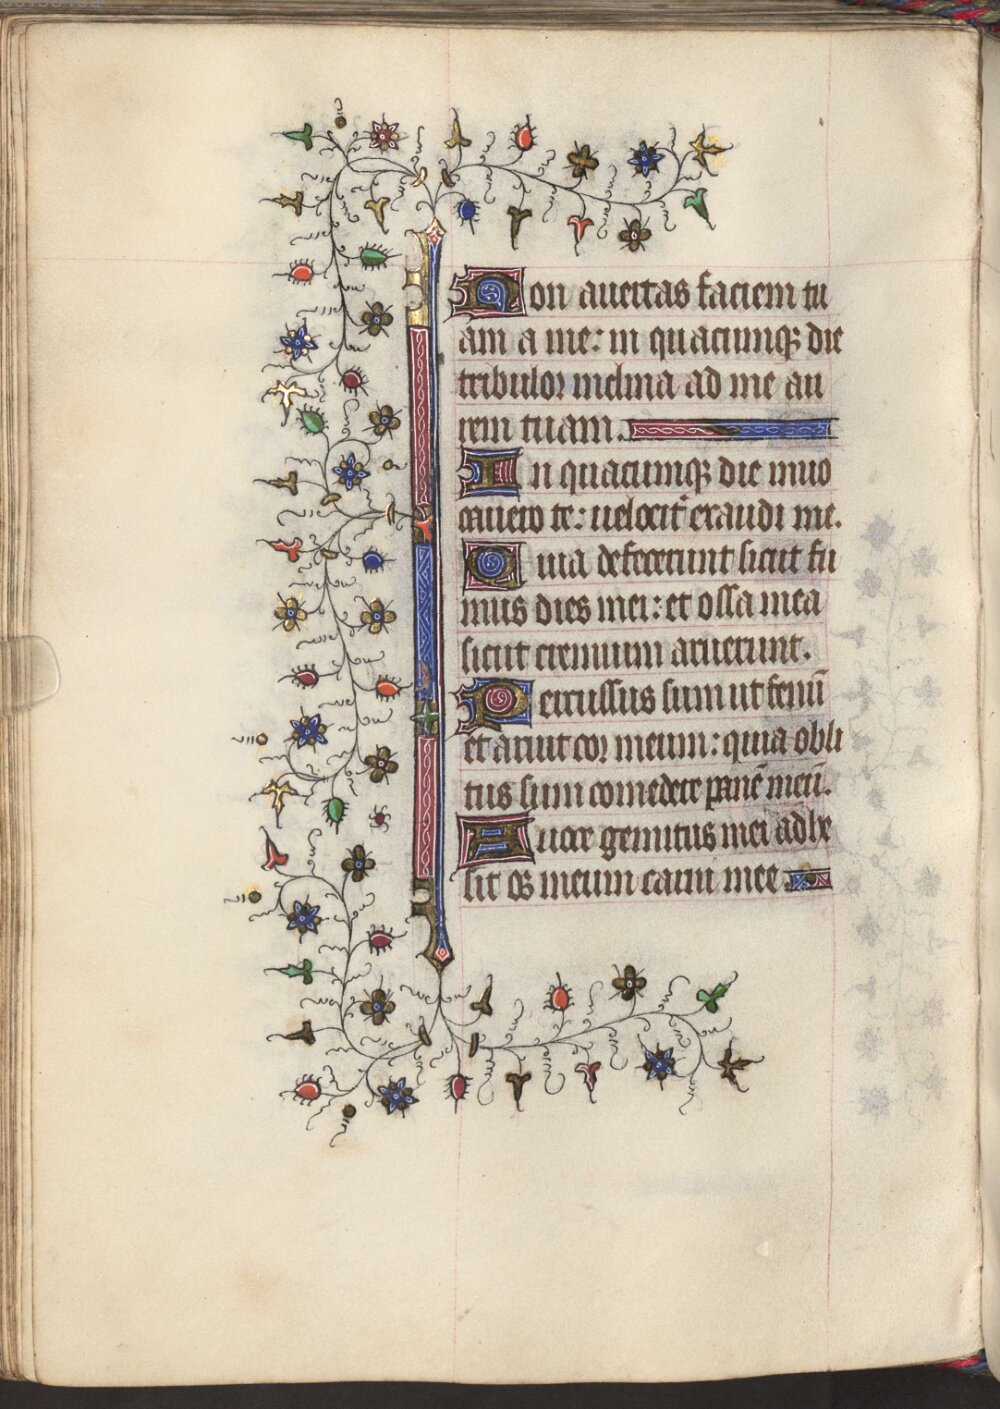 Non auertas faciem tu
am a me: in quacumq; die
tribulor inclina ad me au
rem tuam.
In quacumq; die inuo
cauero te: uelocit' exaudi me.
Quia defecerunt sicut fu
mus dies mei: et ossa mea
sicut cremium aruerunt.
Percussus sum ut fenū
et aruit cor meum: quia obli
tus sum comedere panē meū.
A uoce gemitus mei adhe
sit os meum carni mee